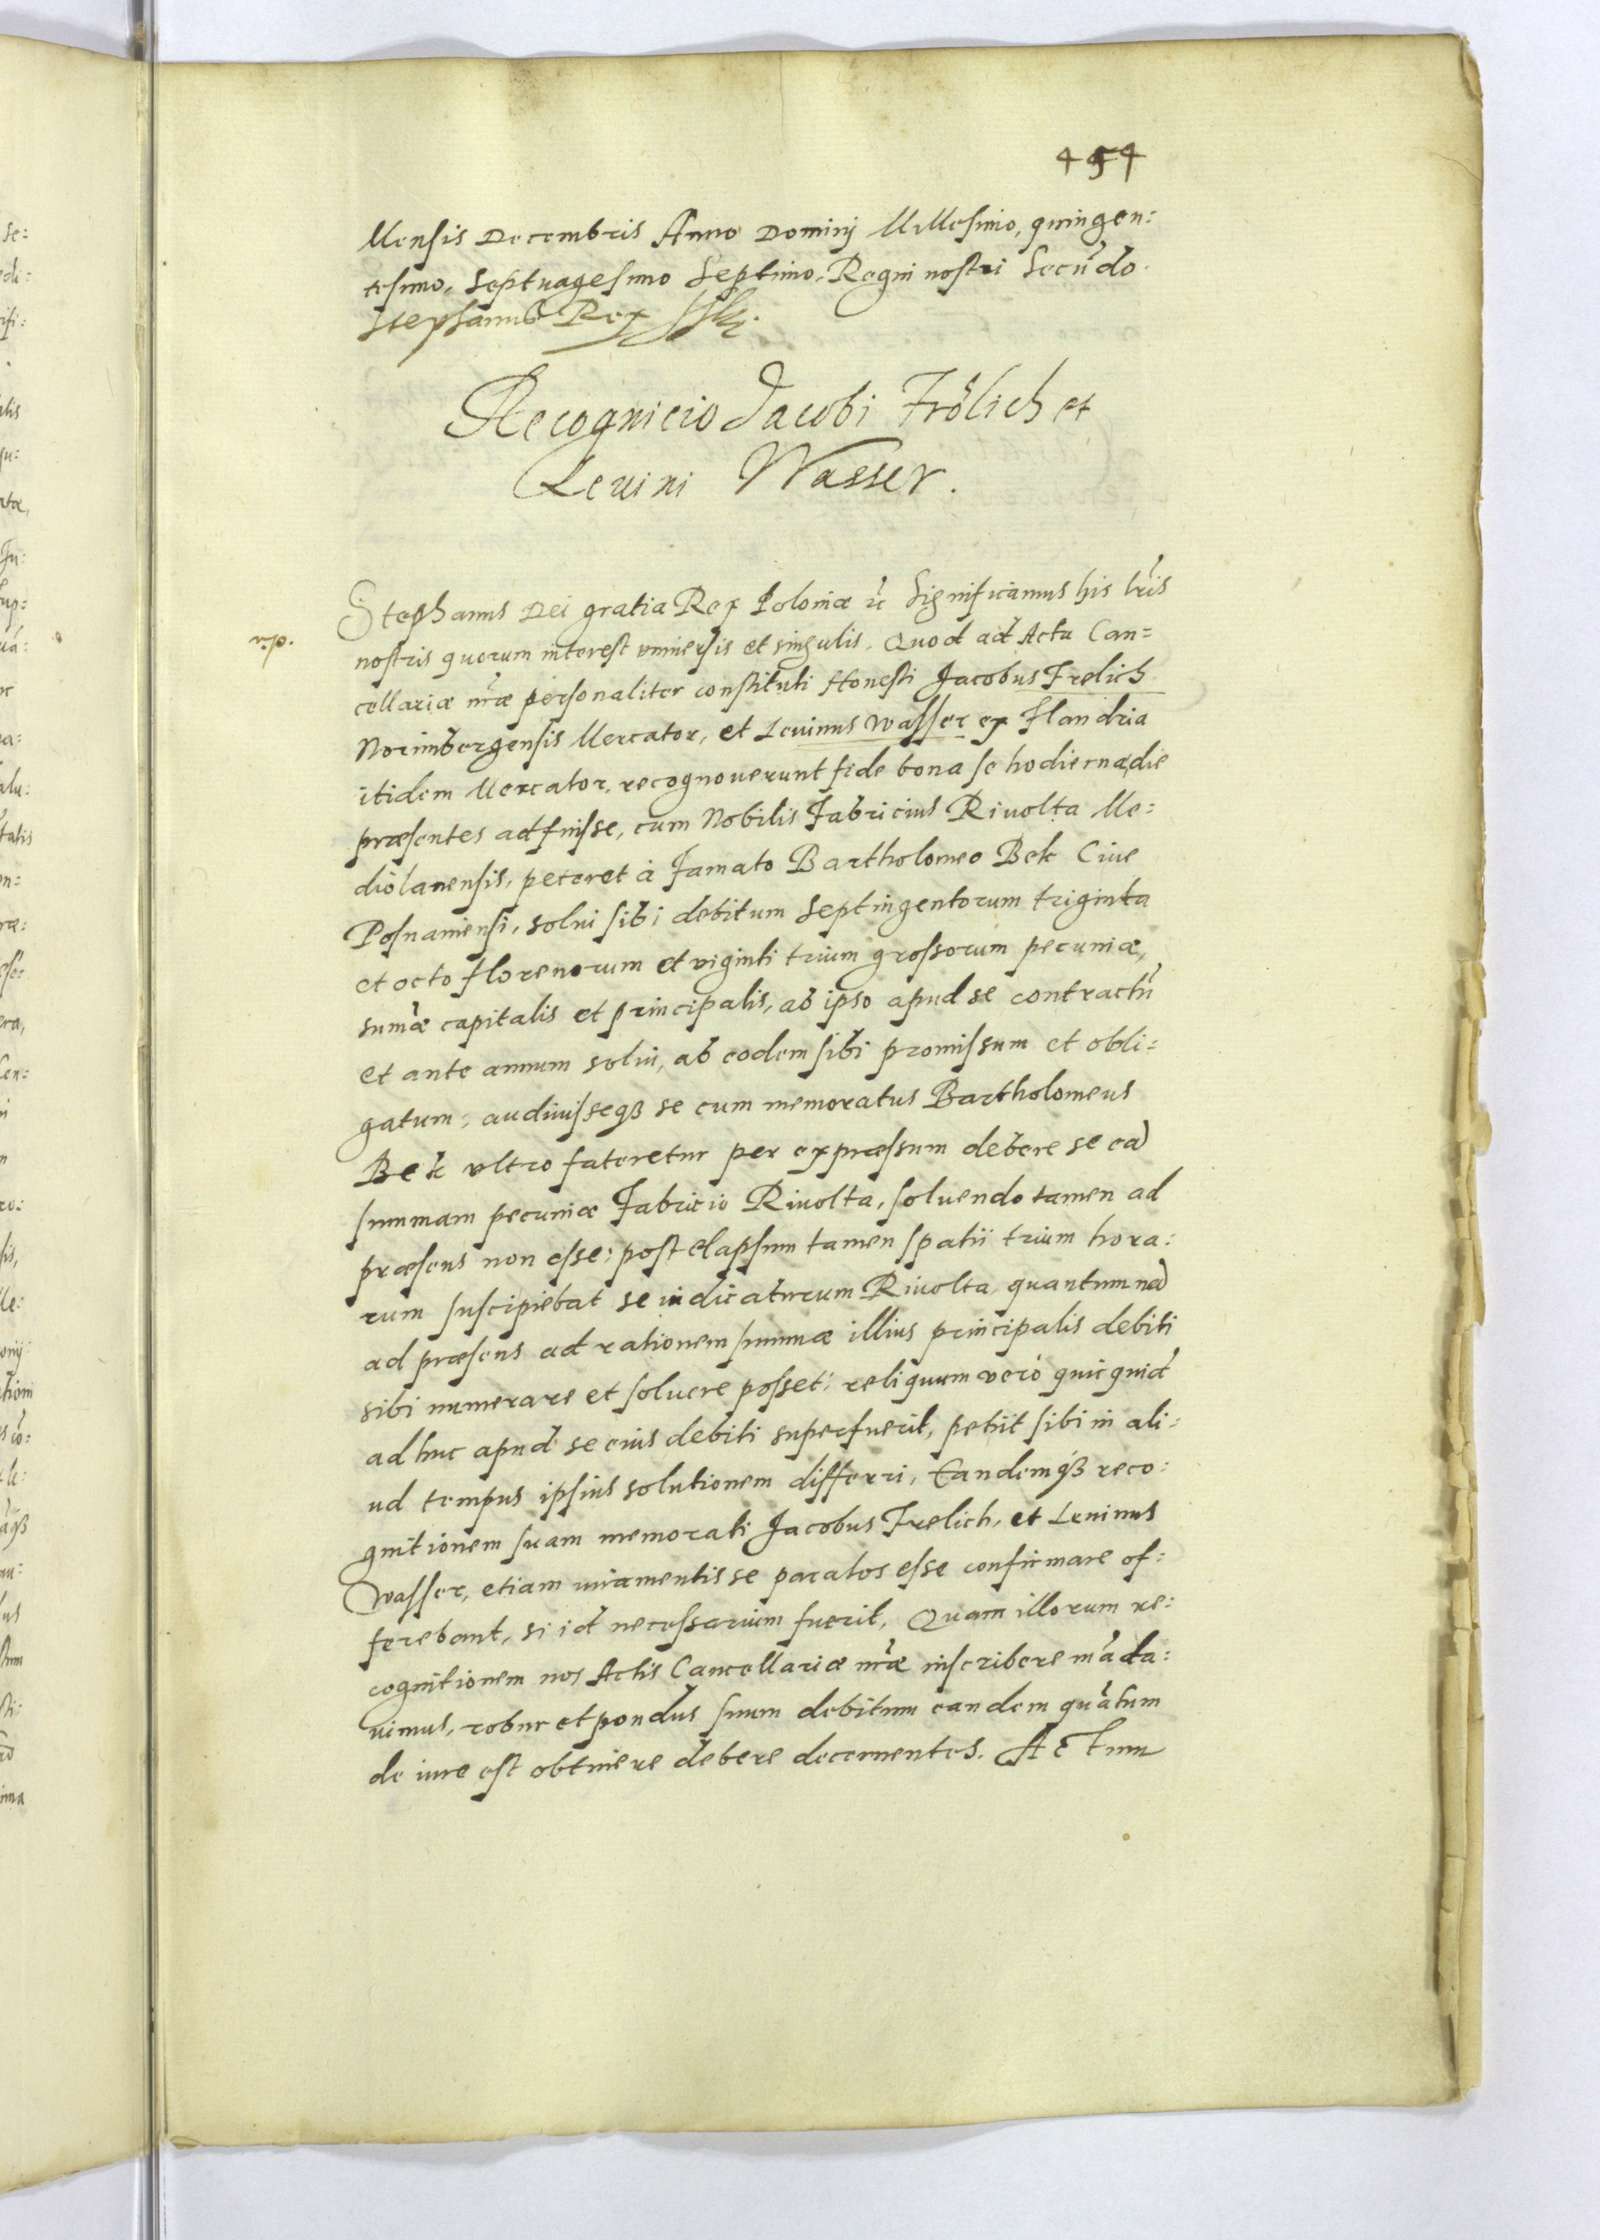 454
Mensis Decembris Anno Dominj Millesimo, quingen:
tesimo, Septuagesimo Septimo, Regni nostri Secūdo.
Stephanus Rex
Recognicio Jacobi Frölich et
Leuini Wasser.
Stephanus Dei gratia Rex Poloniæ &c Significamus his lr̄is
nostris quorum interest vniuersis et singulis. Quod ad Acta Can=
cellariæ nr̄æ personaliter constituti Honesti Jacobus Frelich
Norimbergensis Mercator, et Leuinus Wasser ex Flandria
itidem Mercator, recognouerunt fide bona se hodierna die
præsentes adfuisse, cum Nobilis Fabricius Riuolta Me:
diolanensis, peteret à Famato Bartholomeo Bek Ciue
Posnaniensi, solui sibi debitum Septingentorum triginta
et octo florenorum et viginti trium grossorum pecuniæ,
sum̄æ capitalis et principalis, ab ipso apud se contractū
et ante annum solui, ab eodem sibi promissum et obli:
gatum: audiuisseqȝ se cum memoratus Bartholomeus
Bek vltro fateretur per expræssum debere se ea
summam pecuniæ Fabricio Riuolta, soluendo tamen ad
præsens non esse: post elapsum tamen spatii trium hora:
rum suscipiebat se indicaturum Riuolta quantumnā
ad præsens ad rationem summæ illius principalis debiti
sibi numerare et soluere posset: reliquum verò quicquid
adhuc apud se eius debiti superfuerit, petiit sibi in ali:
ud tempus ipsius solutionem differri, Eandemqȝ reco:
gnitionem suam memorati Jacobus Frelich, et Leuinus
Wasser, etiam iuramentis se paratos esse confirmare of:
ferebant, si id necessarium fuerit. Quam illorum re:
cognitionem nos Actis Cancellariæ nr̄æ inscribere māda:
uimus, robur et pondus suum debitum eandem quātum
de iure est obtinere debere decernentes. Actum